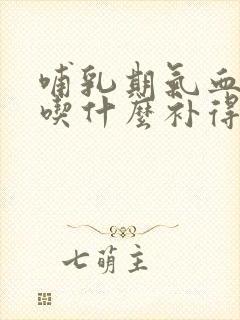 哺乳期氣血
喫什麼补得
七萌主